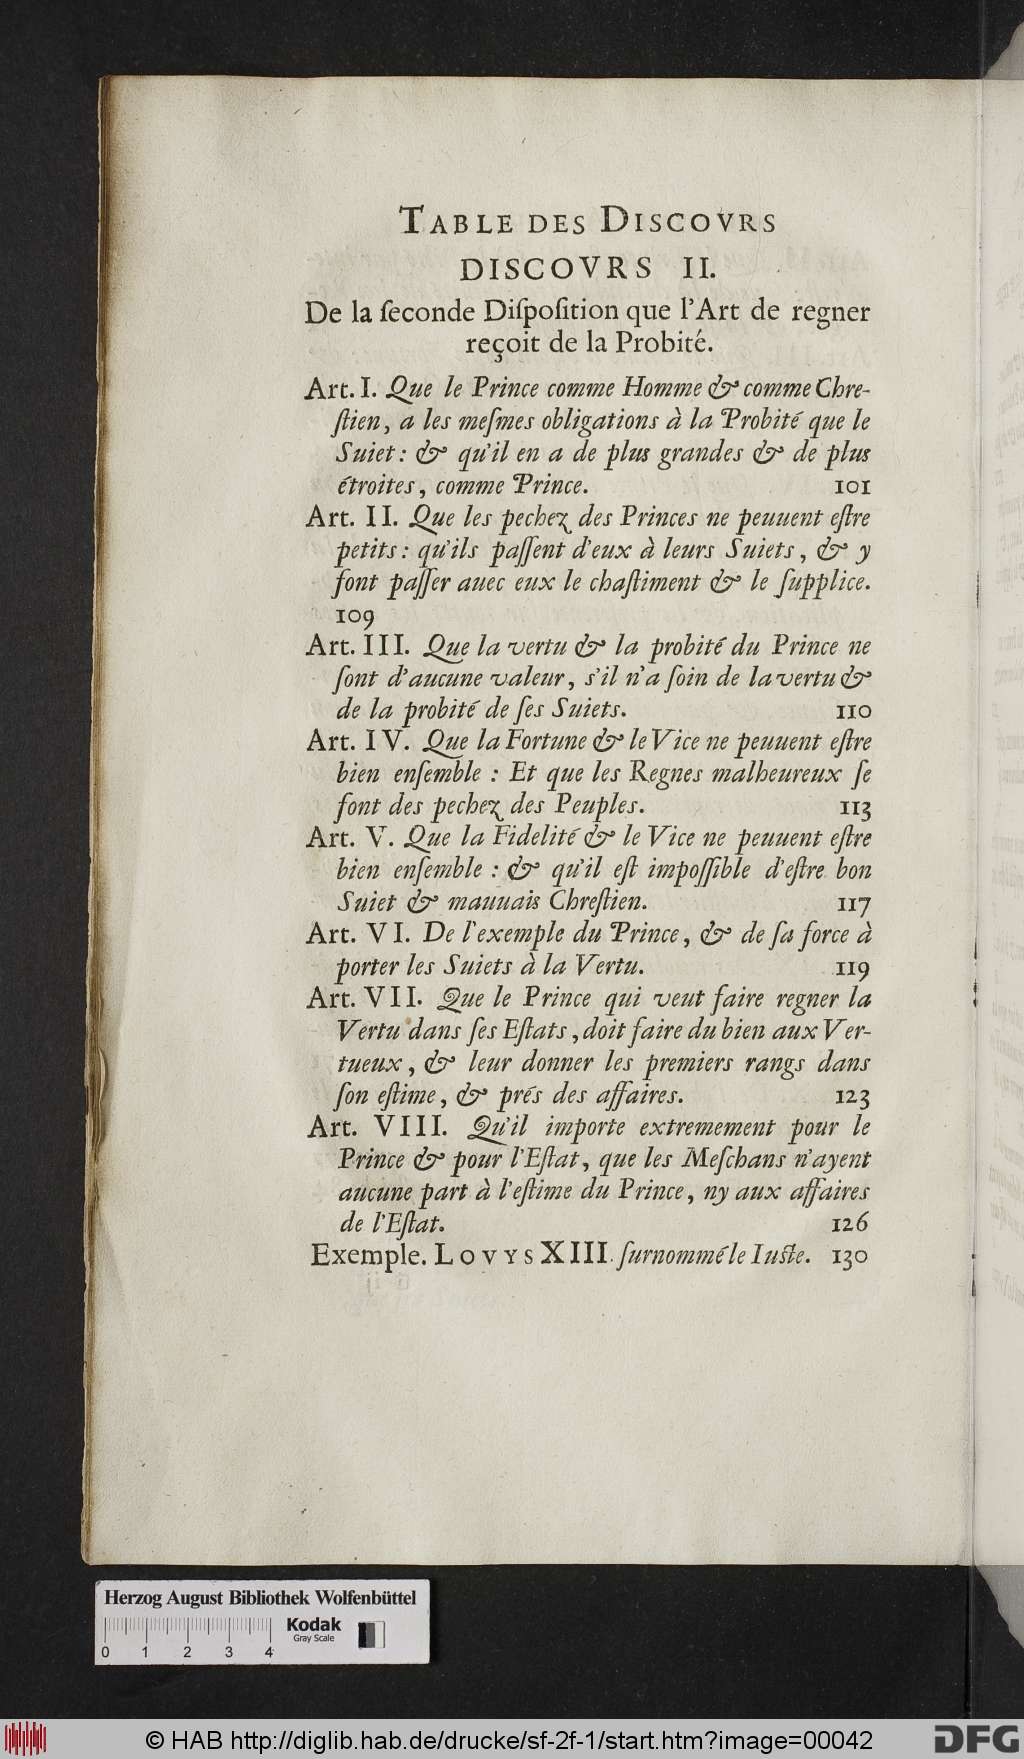 TABLE DES DISCOVRS
DISCOVRS II.
De la ſeconde Diſpoſition que l'Art de regner
reçoit de la Probité.
Art. I. Que le Prince comme Homme & comme Chre-
ſtien, a les meſmes obligations à la Probité que le
Suiet : & qu'il en a de plus grandes & de plus
étroites, comme Prince. 101
Art. II. Que les pechez des Princes ne peuuent eſtre
petits : qu'ils paſſent d'eux à leurs Suiets, & y
font paſſer auec eux le chaſtiment & le ſupplice.
109
Art. III. Que la vertu & la probité du Prince ne
ſont d'aucune valeur, s'il n'a ſoin de la vertu &
de la probité de ſes Suiets. 110
Art. IV. Que la Fortune & le Vice ne peuuent eſtre
bien enſemble : Et que les Regnes malheureux ſe
font des pechez des Peuples. 113
Art. V. Que la Fidelité & le Vice ne peuuent eſtre
bien enſemble : & qu'il eſt impoſſible d'eſtre bon
Suiet & mauuais Chreſtien. 117
Art. VI. De l'exemple du Prince, & de ſa force à
porter les Suiets à la Vertu. 119
Art. VII. Que le Prince qui veut faire regner la
Vertu dans ſes Eſtats, doit faire du bien aux Ver-
tueux, & leur donner les premiers rangs dans
ſon eſtime, & prés des affaires. 123
Art. VIII. Qu'il importe extremement pour le
Prince & pour l'Eſtat, que les Meſchans n'ayent
aucune part à l'eſtime du Prince, ny aux affaires
de l'Eſtat. 126
Exemple. LOVYS XIII. ſurnommé le Iuſte. 130
Herzog August Bibliothek Wolfenbüttel
Kodak
Gray Scale
0 1 2 3 4
© HAB http://diglib.hab.de/drucke/sf-2f-1/start.htm?image=00042
DFG